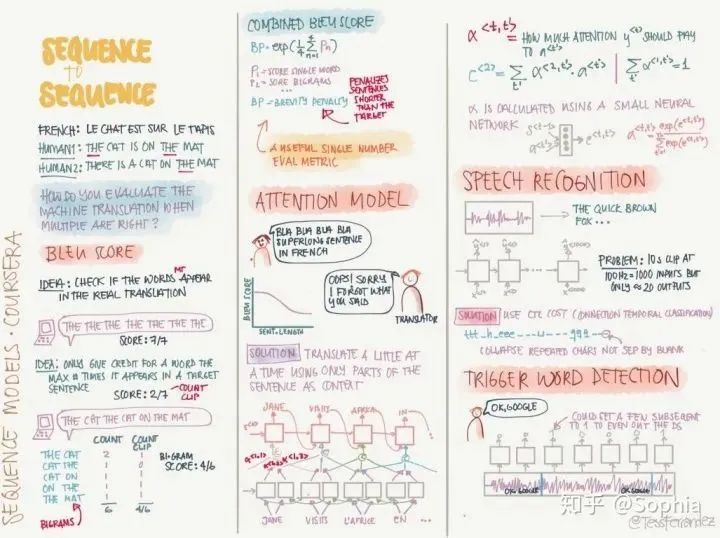 SEQUENCE
to
SEQUENCE
FRENCH: LE CHAT EST SUR LE TAPIS
HUMAN1: THE CAT IS ON THE MAT
HUMAN2: THERE IS A CAT ON THE MAT
HOW DO YOU EVALUATE THE
MACHINE TRANSLATION WHEN
MULTIPLE ARE RIGHT?
BLEU SCORE
IDEA: CHECK IF THE WORDS MT APPEAR
IN THE REAL TRANSLATION
THE THE THE THE THE THE THE
SCORE: 7/7
IDEA: ONLY GIVE CREDIT FOR A WORD THE
MAX # TIMES IT APPEARS IN A TARGET
SENTENCE
SCORE: 2/7
COUNT
CLIP
THE CAT THE CAT ON THE MAT
COUNT
COUNT
CLIP
THE CAT 2 1
CAT THE 1 0
CAT ON 1 1
ON THE 1 1
THE MAT 1 1
6 4/6
BIGRAM
SCORE: 4/6
BIGRAMS
SEQUENCE MODELS · COURSERA
COMBINED BLEU SCORE
BP · exp(1/4 ∑ Pn)
n=1
4
P1 = SCORE SINGLE WORD
P2 = SCORE BIGRAMS
...
BP = BREVITY PENALTY
PENALIZES
SENTENCES
SHORTER
THAN THE
TARGET
A USEFUL SINGLE NUMBER
EVAL METRIC
ATTENTION MODEL
BLA BLA BLA BLA
SUPERLONG SENTENCE
IN FRENCH
BLEU SCORE
SENT. LENGTH
OOPS! SORRY
I FORGOT WHAT
YOU SAID
TRANSLATOR
SOLUTION TRANSLATE A LITTLE AT
A TIME USING ONLY PARTS OF THE
SENTENCE AS CONTEXT
JANE VISITS AFRICA IN
JANE VISITS L'AFRICE EN
α<t,t'> = HOW MUCH ATTENTION y<t> SHOULD PAY
TO a<t'>
c<2> = ∑ α<2,t'> · a<t'> | ∑ α<1,t'> = 1
t' t'
α IS CALCULATED USING A SMALL NEURAL
NETWORK
s<t-1>
a<t'>
e<t,t'>
α<t,t'> = exp(e<t,t'>)
∑ exp(e<t,t'>)
SPEECH RECOGNITION
THE QUICK BROWN
FOX...
PROBLEM: 10s CLIP AT
100Hz = 1000 INPUTS BUT
ONLY ≈ 20 OUTPUTS
SOLUTION USE CTC COST (CONNECTION TEMPORAL CLASSIFICATION)
COLLAPSE REPEATED CHARS NOT SEP BY BLANK
TRIGGER WORD DETECTION
OK, GOOGLE
COULD SET A FEW SUBSEQUENT
TO 1 TO EVEN OUT THE DS
OK, GOOGLE OK, GOOGLE
知乎 @Sophia
@TessFerrandez